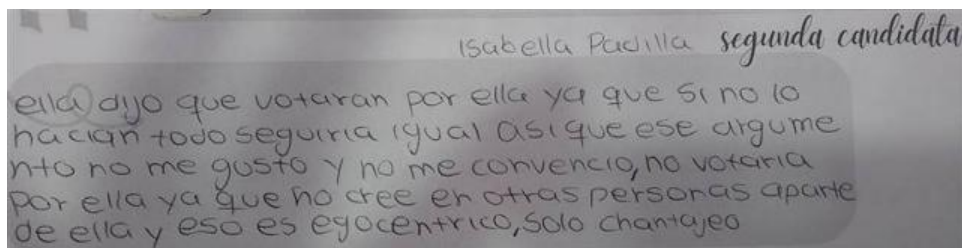 Isabella Padilla segunda candidata
ella dijo que votaran por ella ya que si no lo
hacian todo seguiria igual asi que ese argume
nto no me gusto y no me convencio, no votaria
por ella ya que no cree en otras personas aparte
de ella y eso es egocentrico, solo chantajeo